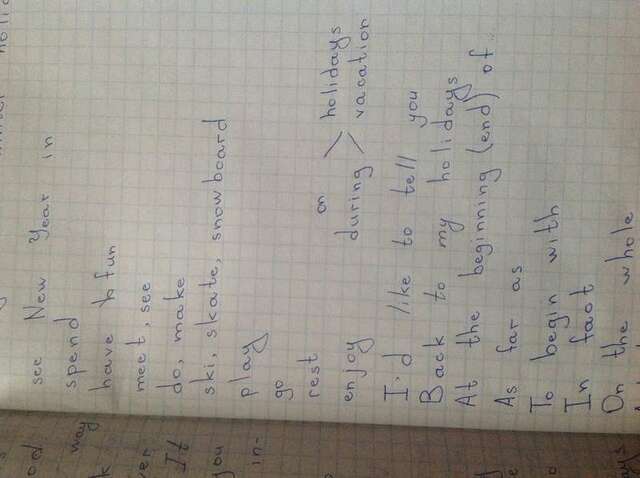 see New Year in
spend
have fun
meet, see
do, make
ski, skate, snowboard
play
go
rest
on holidays
enjoy during vacation
I'd like to tell you
Back to my holidays
At the beginning (end) of
As far as
To begin with
In fact
On the whole
od
way
k
ver
It
you
in-